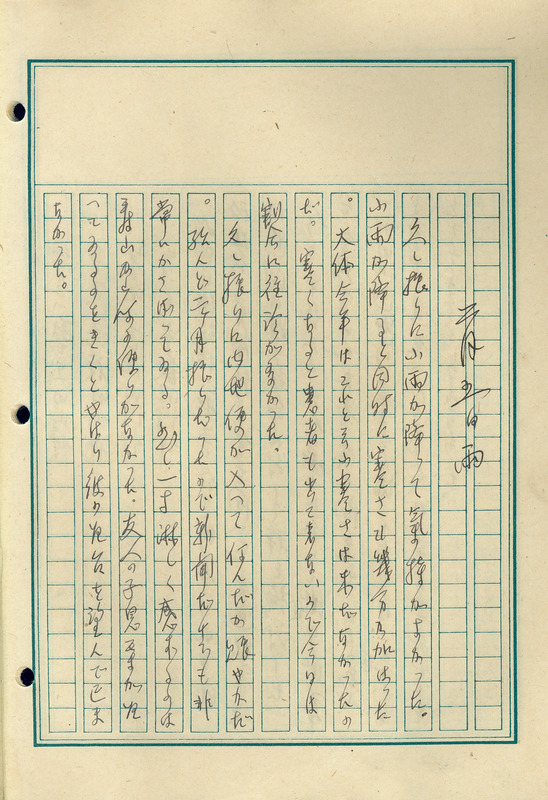 二月五日 雨
久し振りに小雨が降って氣持がよかった。
小雨が降ると同時に寒さも幾分加はった
。大体今年はこれと云ふ寒さは未だなかったの
だ。寒くなると患者も出て来ないので今日は
割合に往診が多かった。
久し振りに内地便が入って何んだか賑やかだ
。殆んど一ヶ月振りだったので新聞だけでも非
常にかさばってゐる。然し一寸淋しく感ずるのは
青山の便りがなかった。友人の子息
へてゐるのをきくとやはり彼の
なかった。